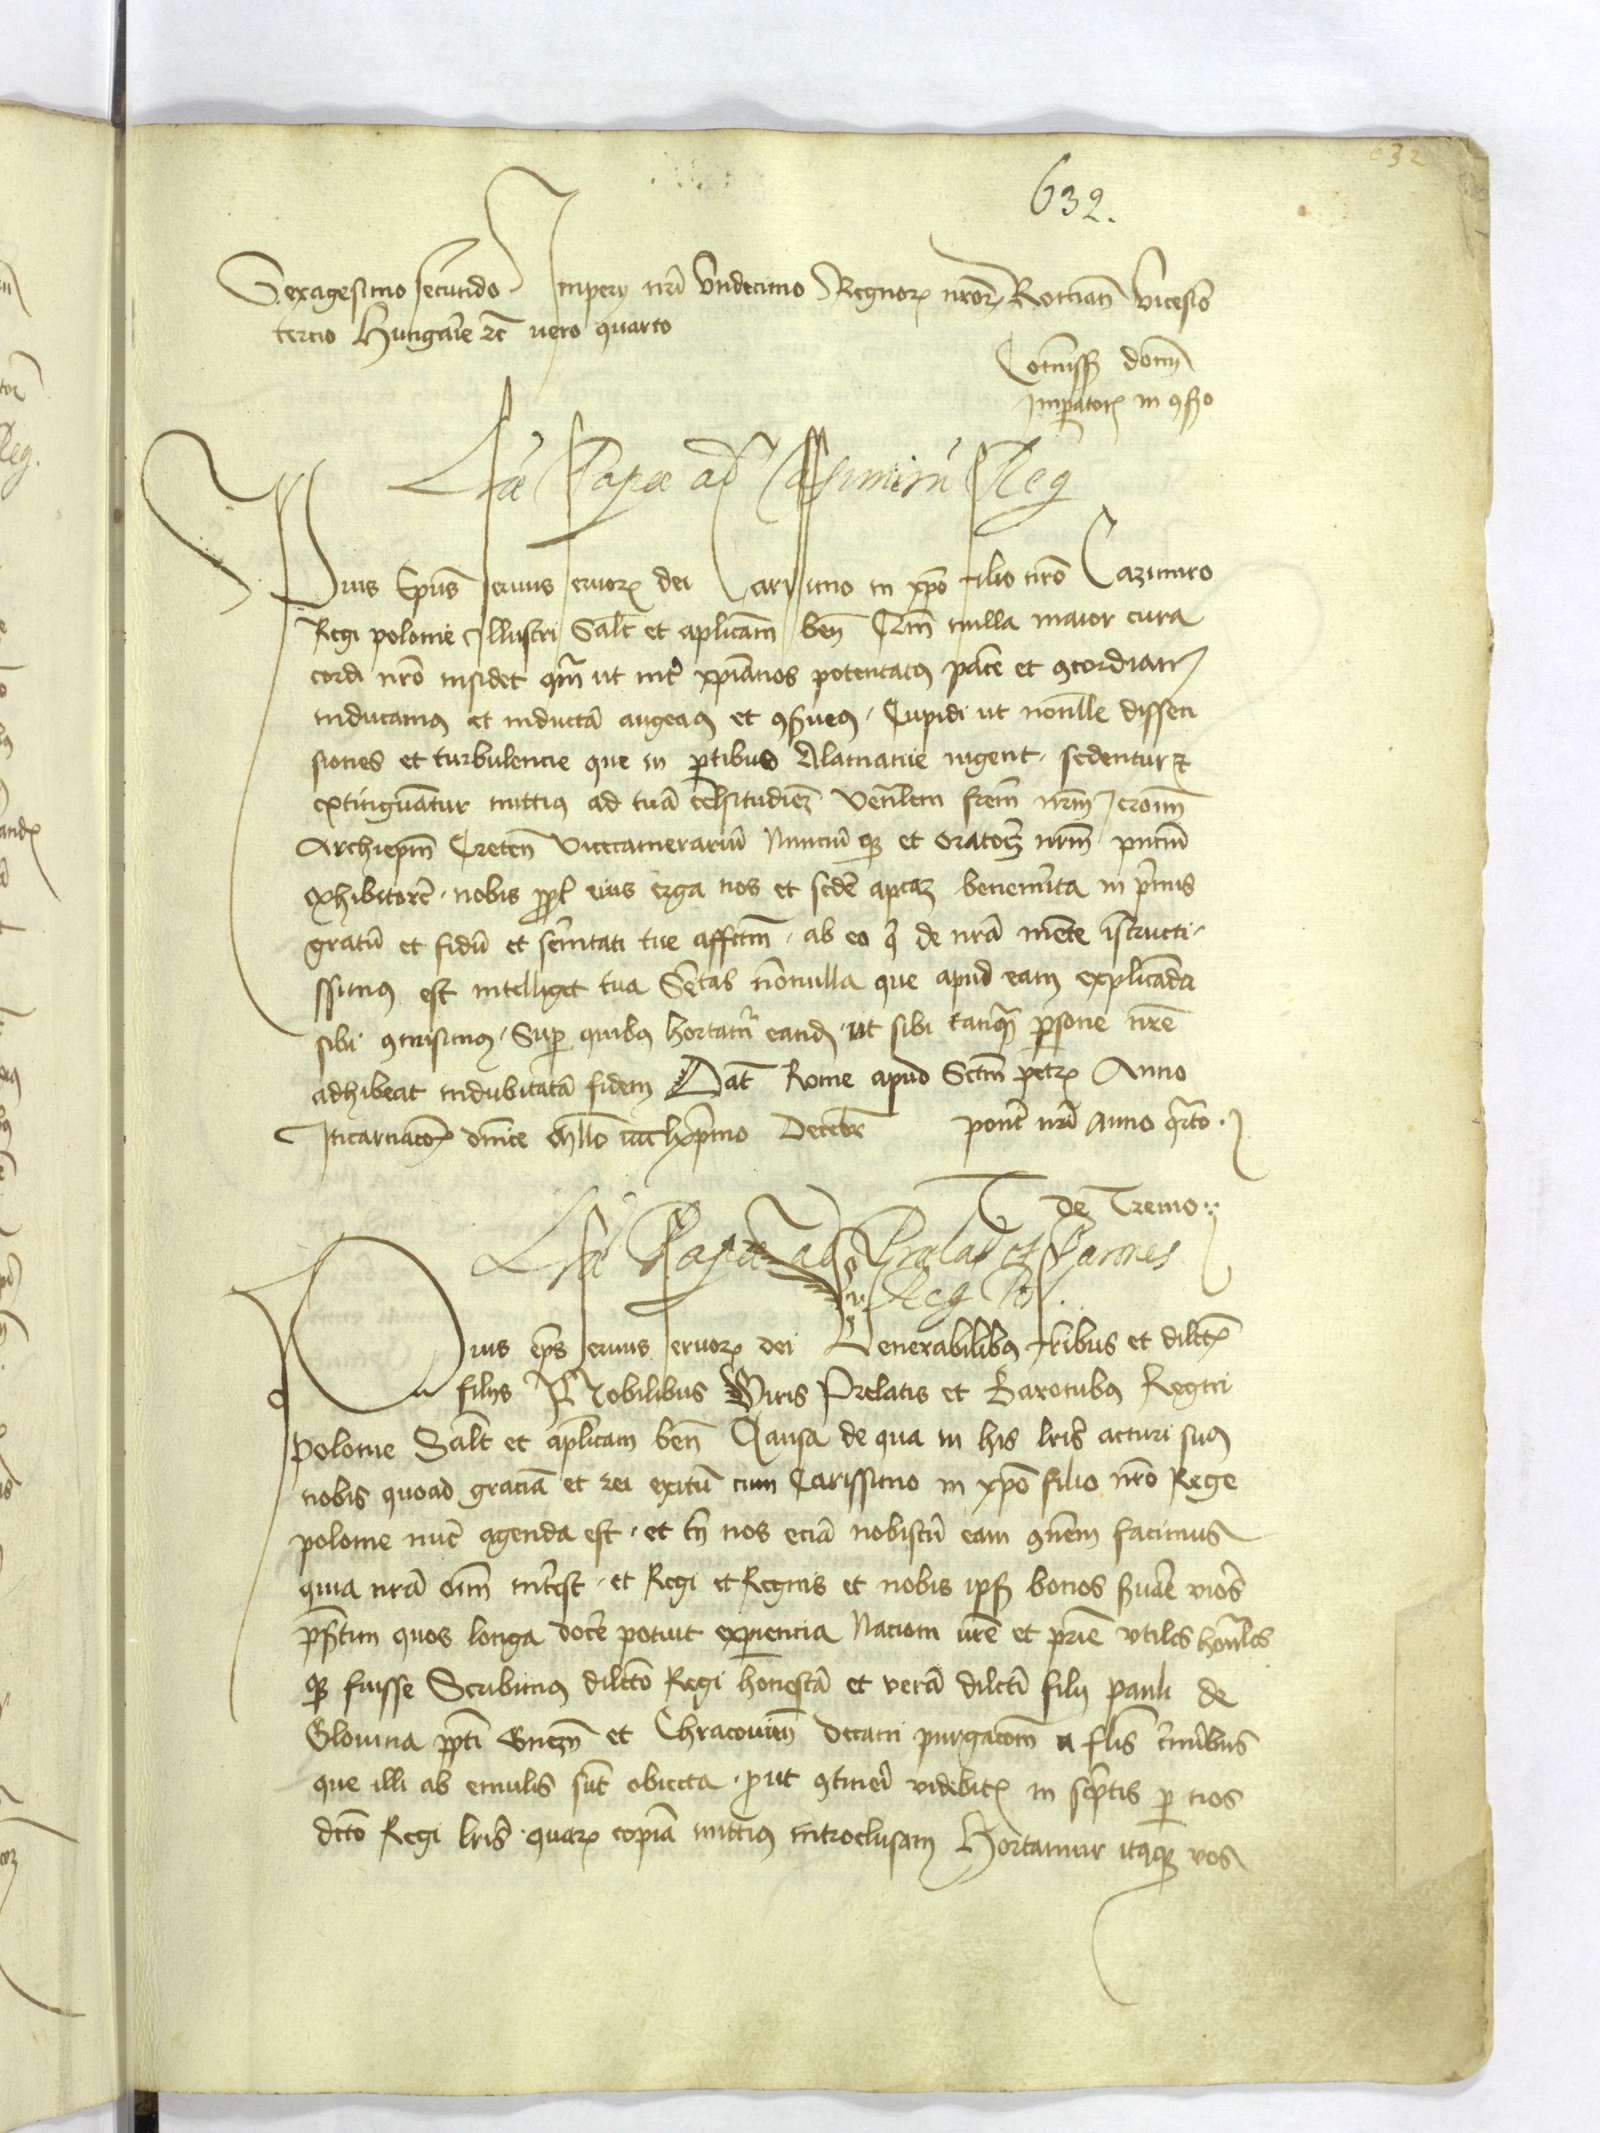 632
632.
Sexagesimo secundo Impery nri Undecimo Regnor nror Roman vicesio
tercio Hungarie zc vero quarto
Comiss domi
Imperator in 9sio
Lræ Papæ ad Casimirū Reg
Pius Epus servus servor dei Carissimo in xpo filio nro Cazimiro
Regi polonie Illustri Salt et aplicam ben Cum nulla maior cura
cordi nro insidet qm ut inter xpianos potentatus pacē et 9cordiam
inducamus et inductā augeamus et 9servemus. Cupidi ut nonulle dissen
siones et turbulencie que in ptibus Alamanie vigent. sedentur et
extinguantur mittimus ad tuā celsitudiez venlem frem nrm Jeronim
Archiepm Creten Vicecamerariū Nunciū qz et oratorez nrm pntiū
exhibitorē. nobis ppt eius erga nos et sedē aplcaz benemerita in primis
gratū et fidū et serenitati tue affectm. ab eo q de nrā mente istructi
ssimus est intelliget tua Serenitas nonulla que apud eam explicanda
sibi 9misimus. Sup quibus hortamur eand. ut sibi tanquā persone nre
adhibeat indubitatā fidem Dat Rome apud Sctm petrū Anno
Incarnacois dnice Mllo iiiic lxprimo Decēbr pont nri Anno qrto.
de Tremo
Lræ Papæ ad Prælat et Barones
Reg Pol.
Pius eps servus servor dei Venerabilibus fribus et dilctis
filys Nobilibus Viris Prelatis et Baronibus Regni
Polonie Salt et aplicam ben Causa de qua in his lris acturi sumus
nobis quoad graciā et rei exitū cum Carissimo in xpo filio nro Rege
polonie nunc agenda est. et tn nos eciā vobiscū eam 9munem facimus
quia nrā oim interest. et Regi et Regnis et nobis ipsis bonos servare viros
presertim quos longa docere potuit experiencia Nacioni vre et patrie utiles honorabiles
qz fuisse Scribimus dilcto Regi honestā et verā dilcti fily pauli de
Glovina ppti Gnezn et Chracovien decani purgacom a flis criminibus
que illi ab emulis sūt obiecta. prout 9tineri videbitis in scriptis per nos
dcto Regi lris. quarū copiā mittimus introclusam Hortamur itaqz vos